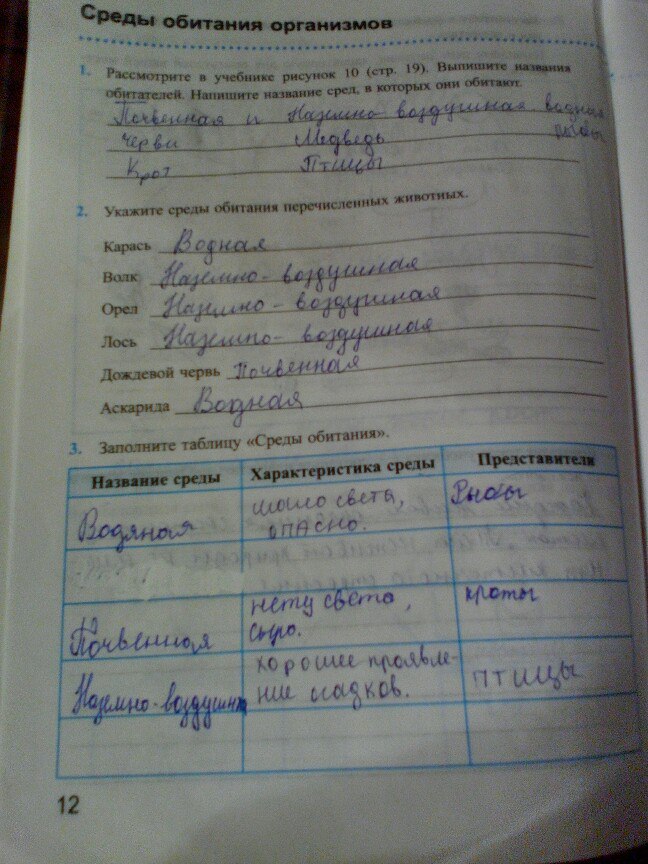 Среды обитания организмов
1. Рассмотрите в учебнике рисунок 10 (стр. 19). Выпишите названия
обитателей. Напишите название сред, в которых они обитают.
Почвенная и Наземно-воздушная водная
черви Медведь рыбы
Крот Птицы
2. Укажите среды обитания перечисленных животных.
Карась Водная
Волк Наземно-воздушная
Орел Наземно-воздушная
Лось Наземно-воздушная
Дождевой червь Почвенная
Аскарида Водная
3. Заполните таблицу «Среды обитания».
Название среды Характеристика среды Представители
Водяная мало света, Рыбы
опасно.
Почвенная нету света, кроты
сыро.
Наземно-воздушна хорошее проявле- птицы
ние осадков.
12